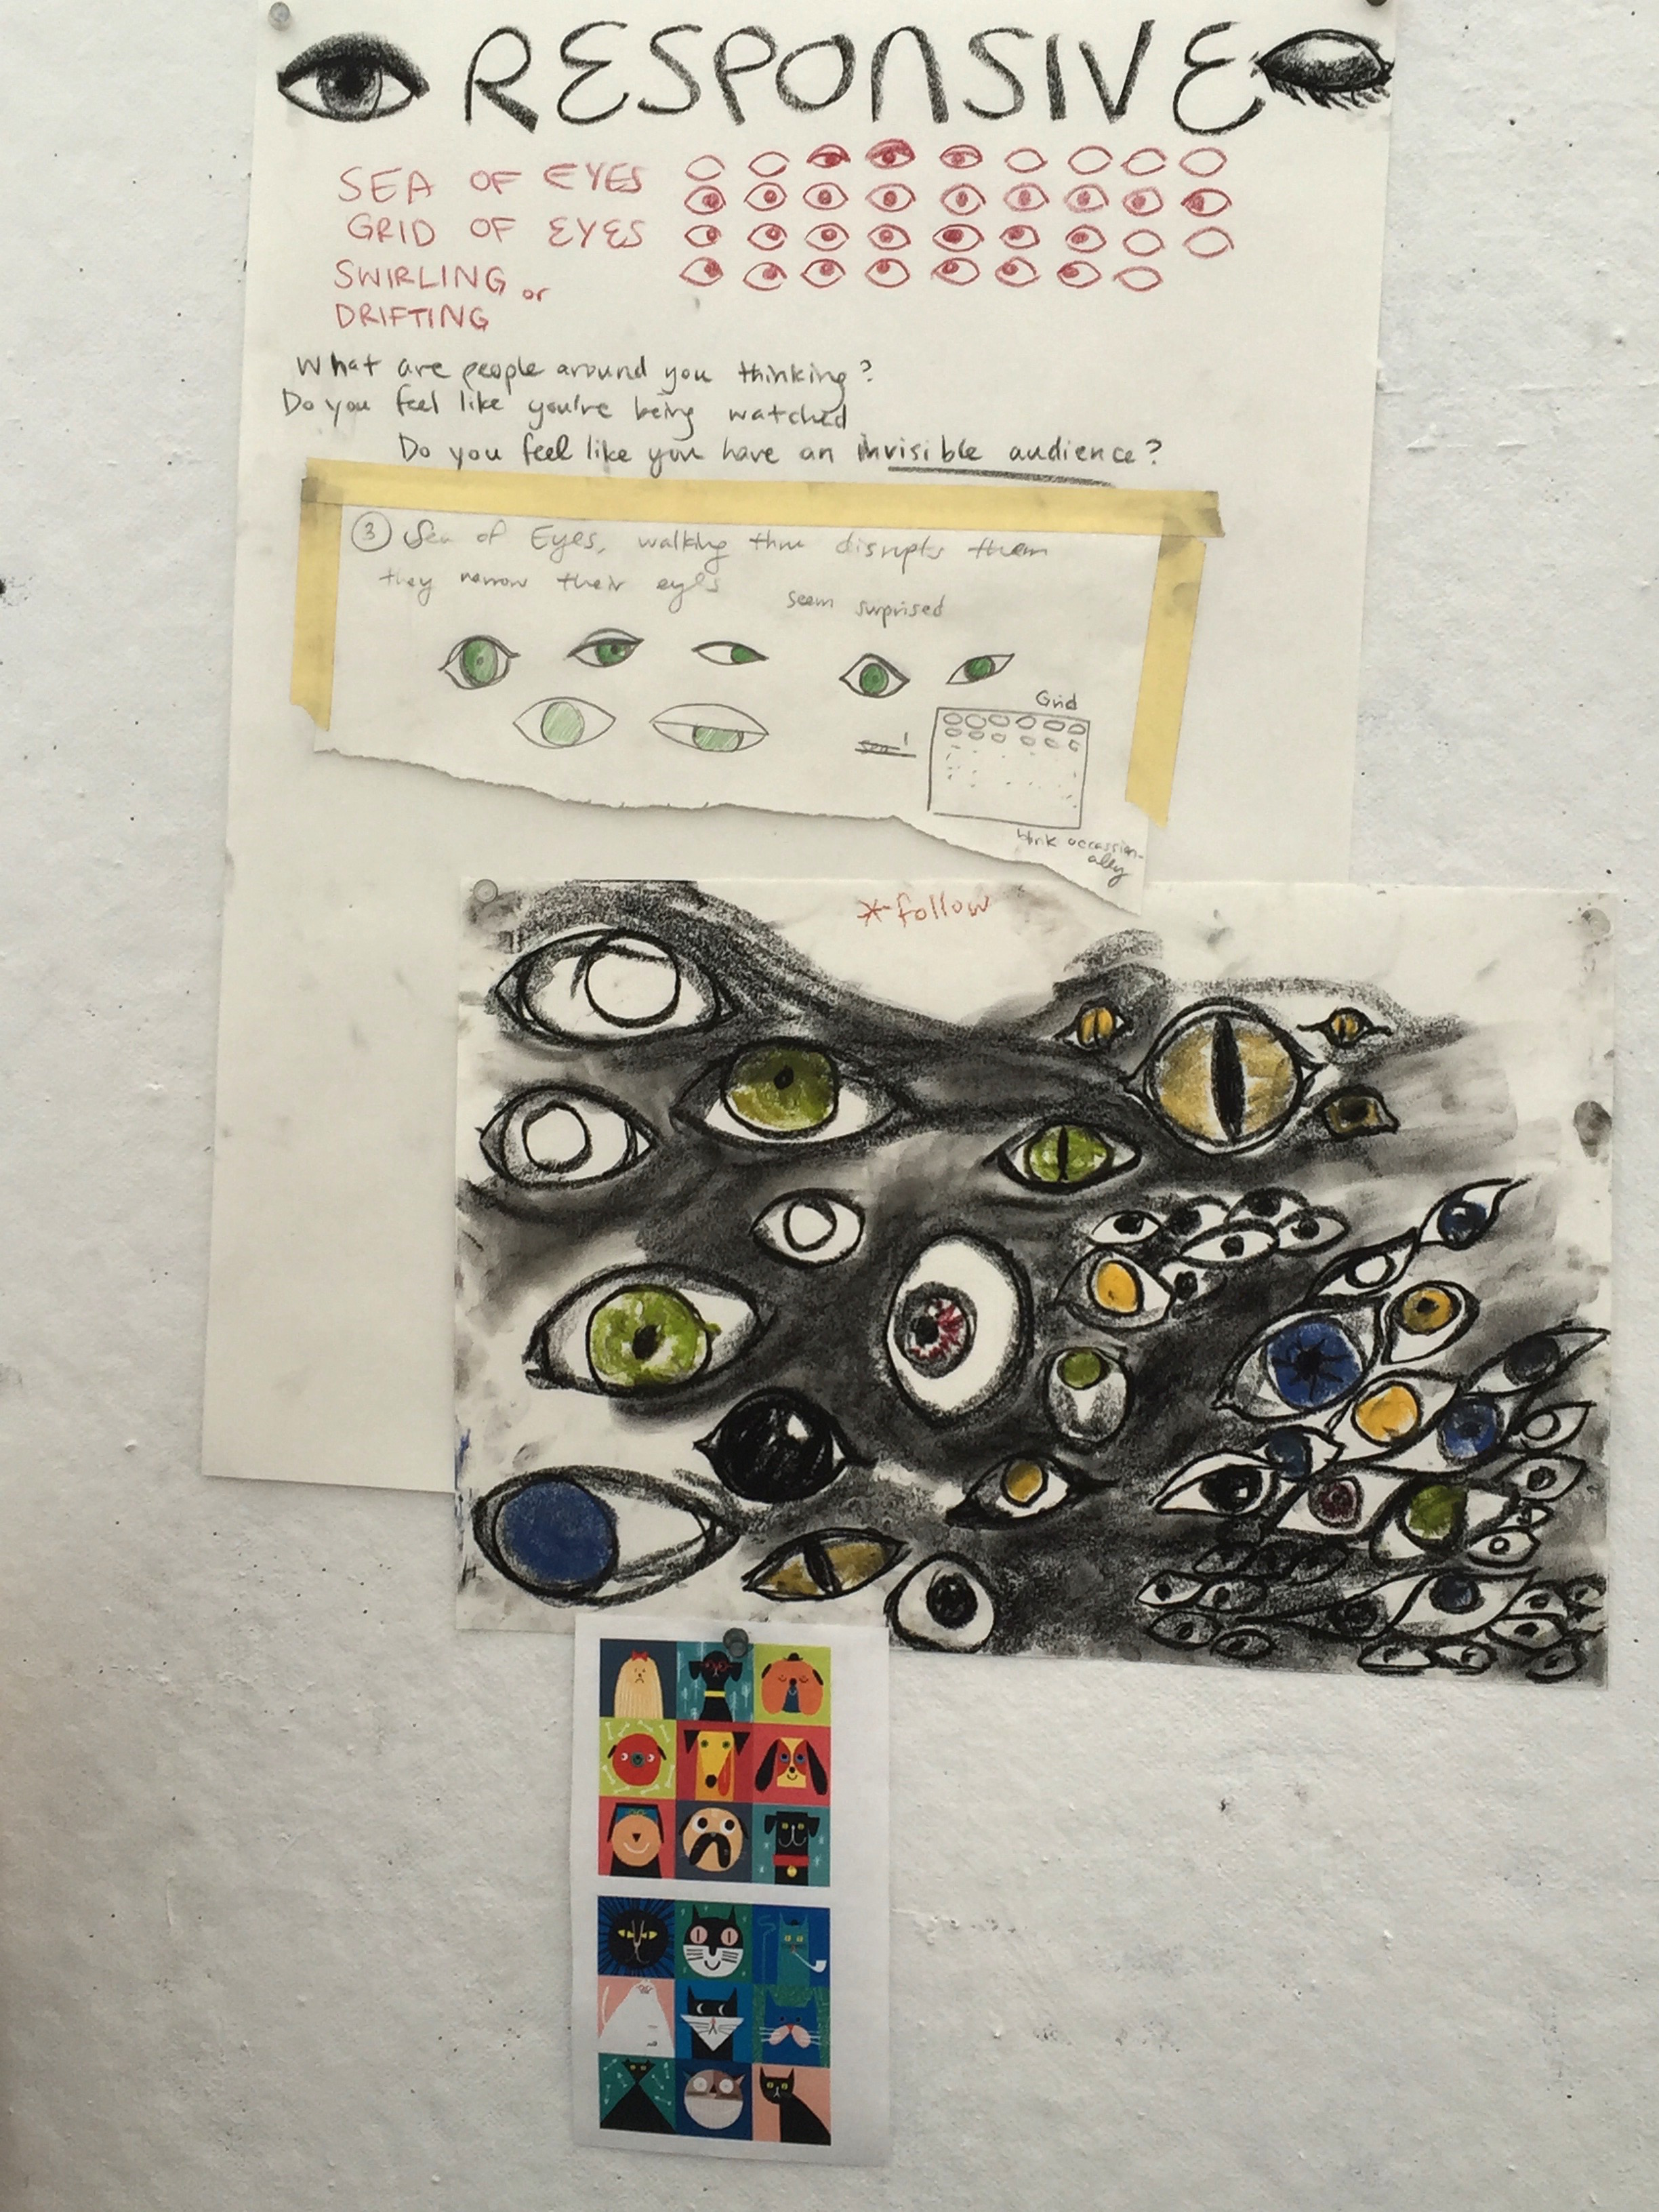 RESPONSIVE
SEA OF EYES
GRID OF EYES
SWIRLING or
DRIFTING
What are people around you thinking?
Do you feel like you're being watched
Do you feel like you have an invisible audience?
3 Sea of Eyes, walking thru disrupts them
they narrow their eyes
seem surprised
Grid
sea!
blink occassion-
ally
*follow